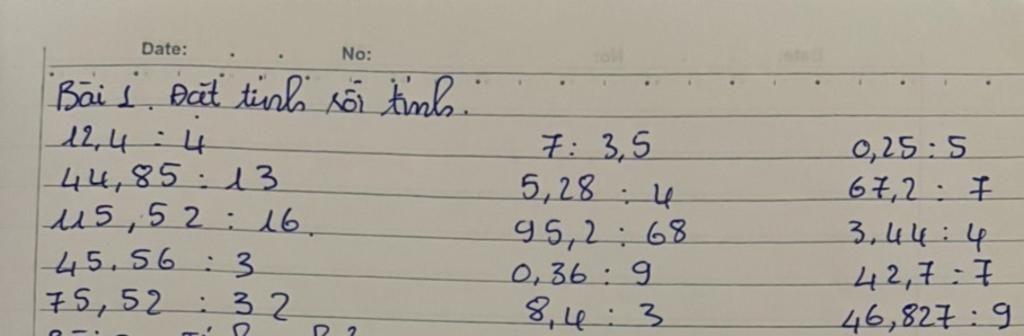 Date: . . No:
Bài 1. Đặt tính rồi tính.
12,4 : 4 7 : 3,5 0,25 : 5
44,85 : 13 5,28 : 4 67,2 : 7
115,52 : 16. 95,2 : 68 3,44 : 4
45.56 : 3 0,36 : 9 42,7 : 7
75,52 : 32 8,4 : 3 46,827 : 9